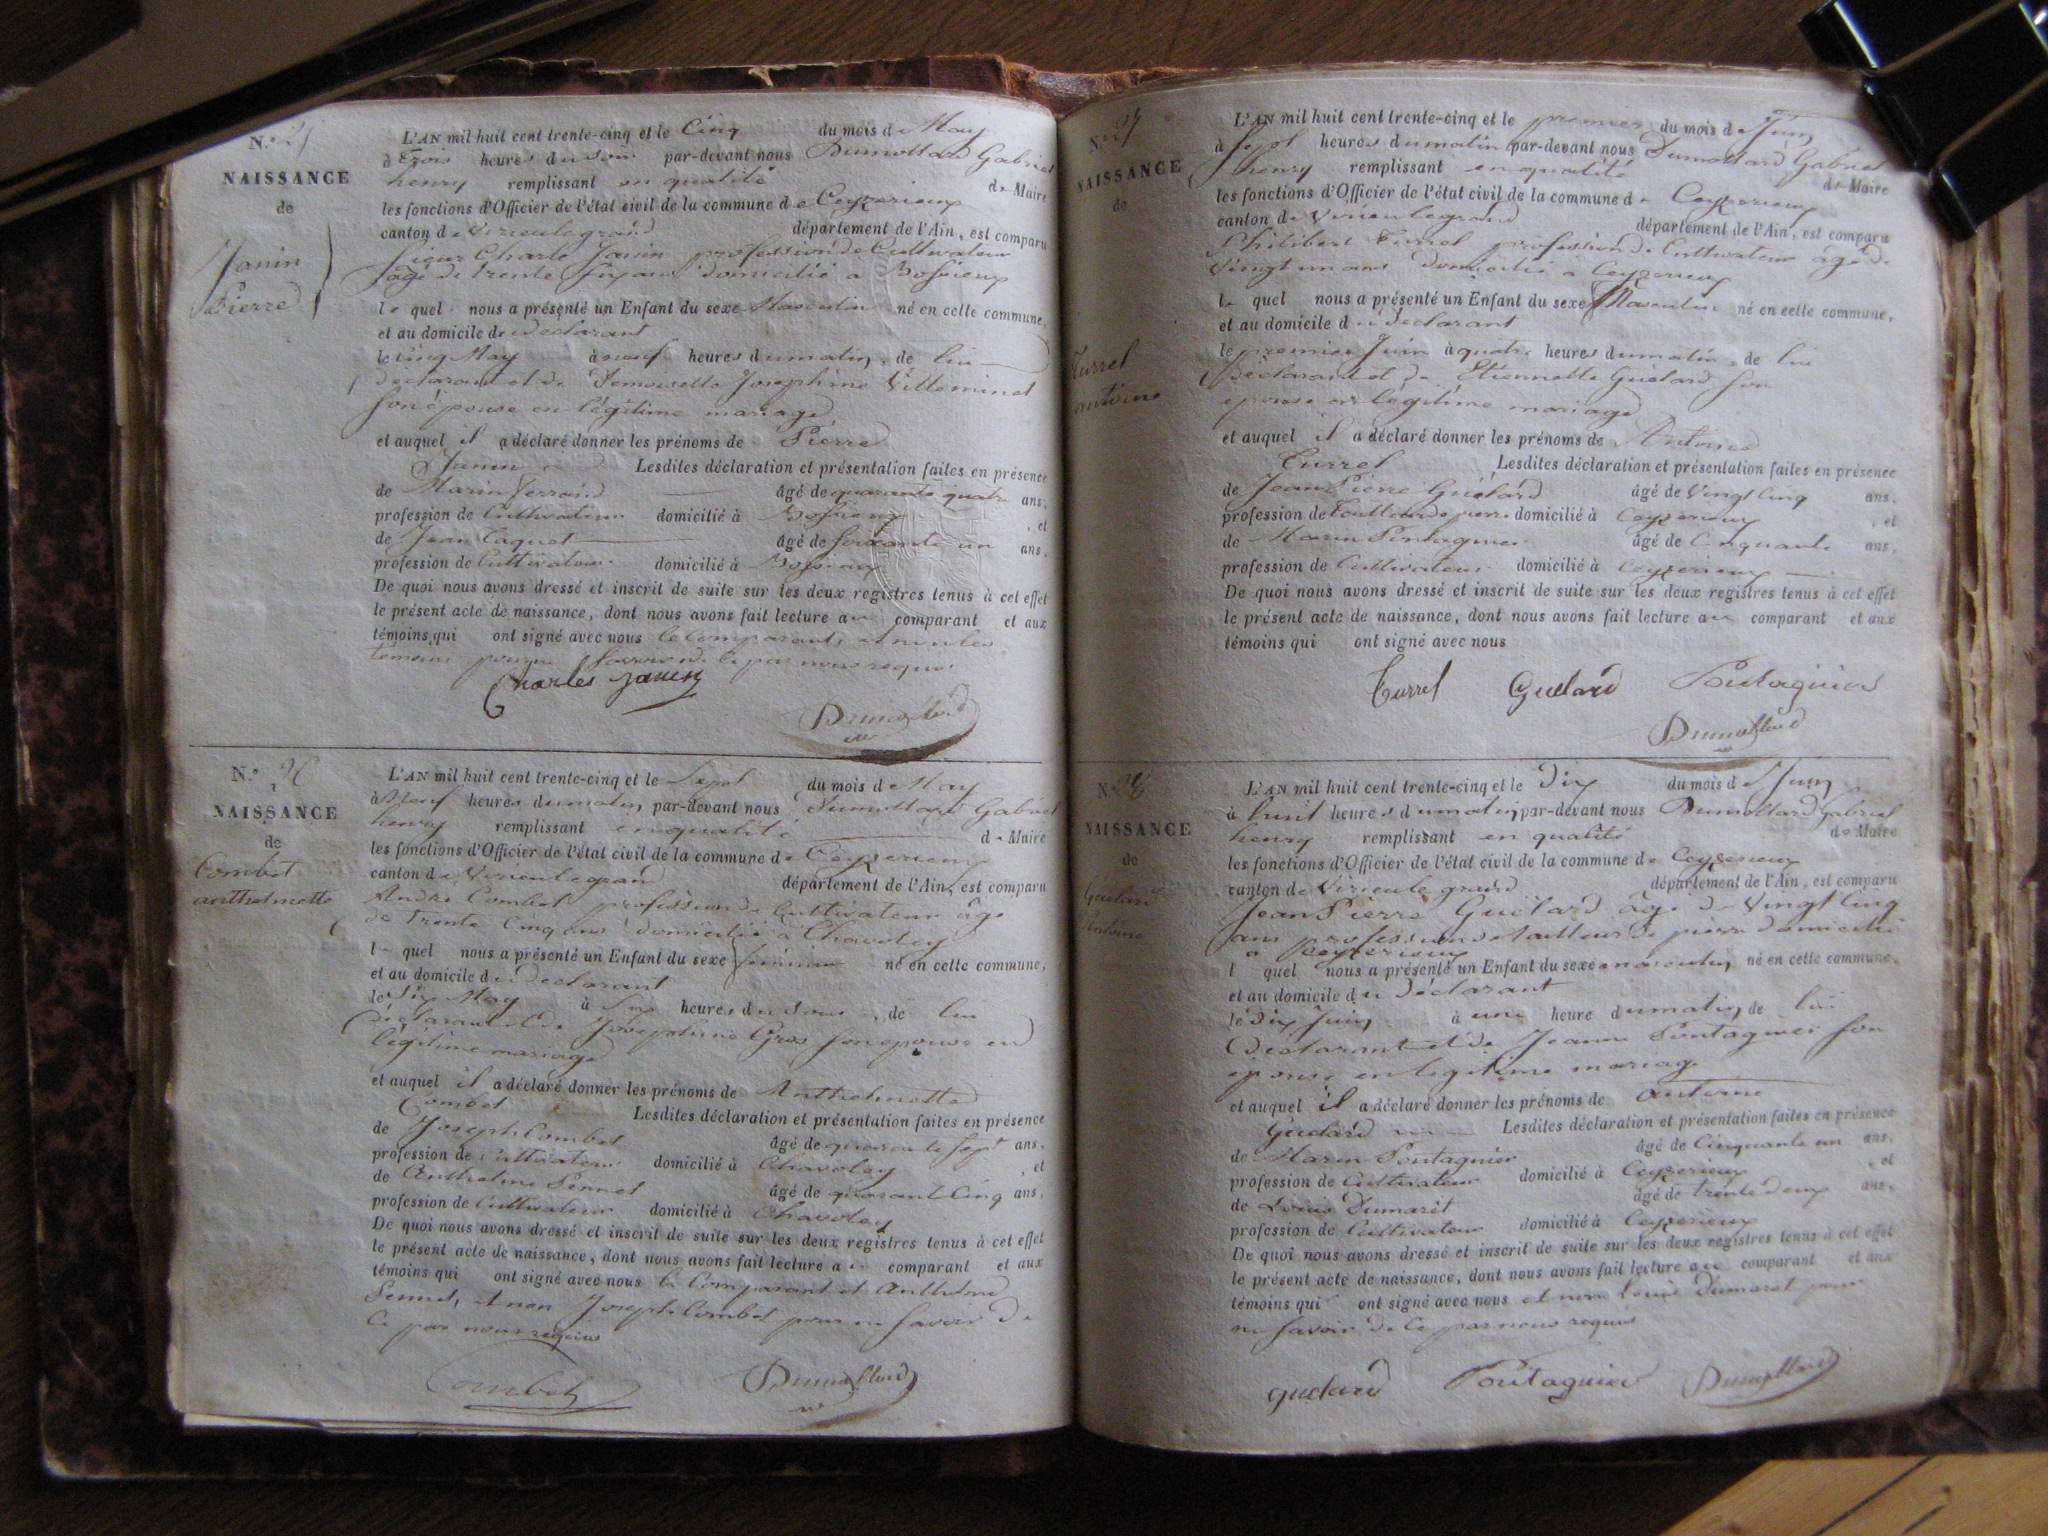 N.° 25
NAISSANCE
de
Janin
Pierre
L'AN mil huit cent trente-cinq et le Cinq du mois de May
à trois heures du soir par-devant nous Dumollard Gabriel
henry remplissant en qualité de Maire
les fonctions d'Officier de l'état civil de la commune de Ceyzerieux
canton de Virieulegrand département de l'Ain, est comparu
sieur Charle Janin profession de Cultivateur
âgé de trente six ans domicilié a
le quel nous a présenté un Enfant du sexe Masculin né en cette commune,
et au domicile du Declarant
le cinq May à neuf heures du matin, de lui
declarant et de Demoiselle Josephine Villeminet
son épouse en légitime mariage
et auquel il a déclaré donner les prénoms de Pierre
Janin Lesdites déclaration et présentation faites en présence
de Marin ferrand âgé de quarante quatre ans,
profession de Cultivateur domicilié à , et
de Jean Caquet âgé de soixante un ans,
profession de Cultivateur domicilié à
De quoi nous avons dressé et inscrit de suite sur les deux registres tenus à cet effet
le présent acte de naissance, dont nous avons fait lecture au comparant et aux
témoins, qui ont signé avec nous le comparant, et non les
temoins pour ne savoir de ce par nous requis
Charles Janin
Dumollard
N.° 26
NAISSANCE
de
Combet
anthelmette
L'AN mil huit cent trente-cinq et le Sept du mois de May
à Neuf heures du matin par-devant nous Dumollard Gabriel
henry remplissant en qualité de Maire
les fonctions d'Officier de l'état civil de la commune de Ceyzerieux
canton de Virieulegrand département de l'Ain, est comparu
André Combet profession de Cultivateur âgé
de trente Cinq ans domicilié à Chavoley
le quel nous a présenté un Enfant du sexe feminin né en cette commune,
et au domicile du Declarant
le Six May à heures du soir, de lui
declarant et de Josephine Gros son epouse en
légitime mariage
et auquel il a déclaré donner les prénoms de Anthelmette
Combet Lesdites déclaration et présentation faites en présence
de Joseph Combet âgé de quarante sept ans,
profession de Cultivateur domicilié à Chavoley , et
de Anthelme Sennet âgé de quarante Cinq ans,
profession de Cultivateur domicilié à Chavoley
De quoi nous avons dressé et inscrit de suite sur les deux registres tenus à cet effet
le présent acte de naissance, dont nous avons fait lecture au comparant et aux
témoins qui ont signé avec nous le Comparant et Anthelme
Sennet, et non Joseph Combet pour ne savoir de
Ce par nous requis
Combet
Dumollard
N.° 27
NAISSANCE
de
Turrel
antoine
L'AN mil huit cent trente-cinq et le premier du mois de Juin
à Sept heures du matin par-devant nous Dumollard Gabriel
henry remplissant en qualité de Maire
les fonctions d'Officier de l'état civil de la commune de Ceyzerieux
canton de Virieulegrand département de l'Ain, est comparu
Philibert Turrel profession de Cultivateur âgé de
Vingt un ans domicilié à Ceyzerieux
le quel nous a présenté un Enfant du sexe Masculin né en cette commune,
et au domicile du Déclarant
le premier Juin à quatre heures du matin, de lui
Declarant et de Etiennette Guélard son
épouse en légitime mariage
et auquel il a déclaré donner les prénoms de Antoine
Turrel Lesdites déclaration et présentation faites en présence
de Jean Pierre Guélard âgé de Vingt Cinq ans,
profession de domicilié à Ceyzerieux , et
de Marin Pontagnier âgé de Cinquante ans,
profession de Cultivateur domicilié à Ceyzerieux
De quoi nous avons dressé et inscrit de suite sur les deux registres tenus à cet effet
le présent acte de naissance, dont nous avons fait lecture au comparant et aux
témoins qui ont signé avec nous
Turrel Guelard Poutagnier
Dumollard
N.° 28
NAISSANCE
de
Guelard
Antoine
L'AN mil huit cent trente-cinq et le Dix du mois de Juin
à huit heures du matin par-devant nous Dumollard Gabriel
henry remplissant en qualité de Maire
les fonctions d'Officier de l'état civil de la commune de Ceyzerieux
canton de Virieule grand département de l'Ain, est comparu
Jean Pierre Guélard âgé de Vingt Cinq
ans profession de tailleur de pierre domicilié
a Ceyzerieux
l quel nous a présenté un Enfant du sexe masculin né en cette commune,
et au domicile du Déclarant
le Dix Juin à une heure du matin, de lui
Declarant et de Jeanne Pontagnier son
épouse en legitime mariage
et auquel il a déclaré donner les prénoms de antoine
Guelard Lesdites déclaration et présentation faites en présence
de Marin Pontagnier âgé de Cinquante un ans,
profession de Cultivateur domicilié à Ceyzerieux , et
de Louis Dumarêt âgé de trente deux ans,
profession de Cultivateur domicilié à Ceyzerieux
De quoi nous avons dressé et inscrit de suite sur les deux registres tenus à cet effet
le présent acte de naissance, dont nous avons fait lecture au comparant et aux
témoins qui ont signé avec nous et non Louis Dumaret pour
ne Savoir de Ce par nous requis
guelard Poutagnier Dumollard